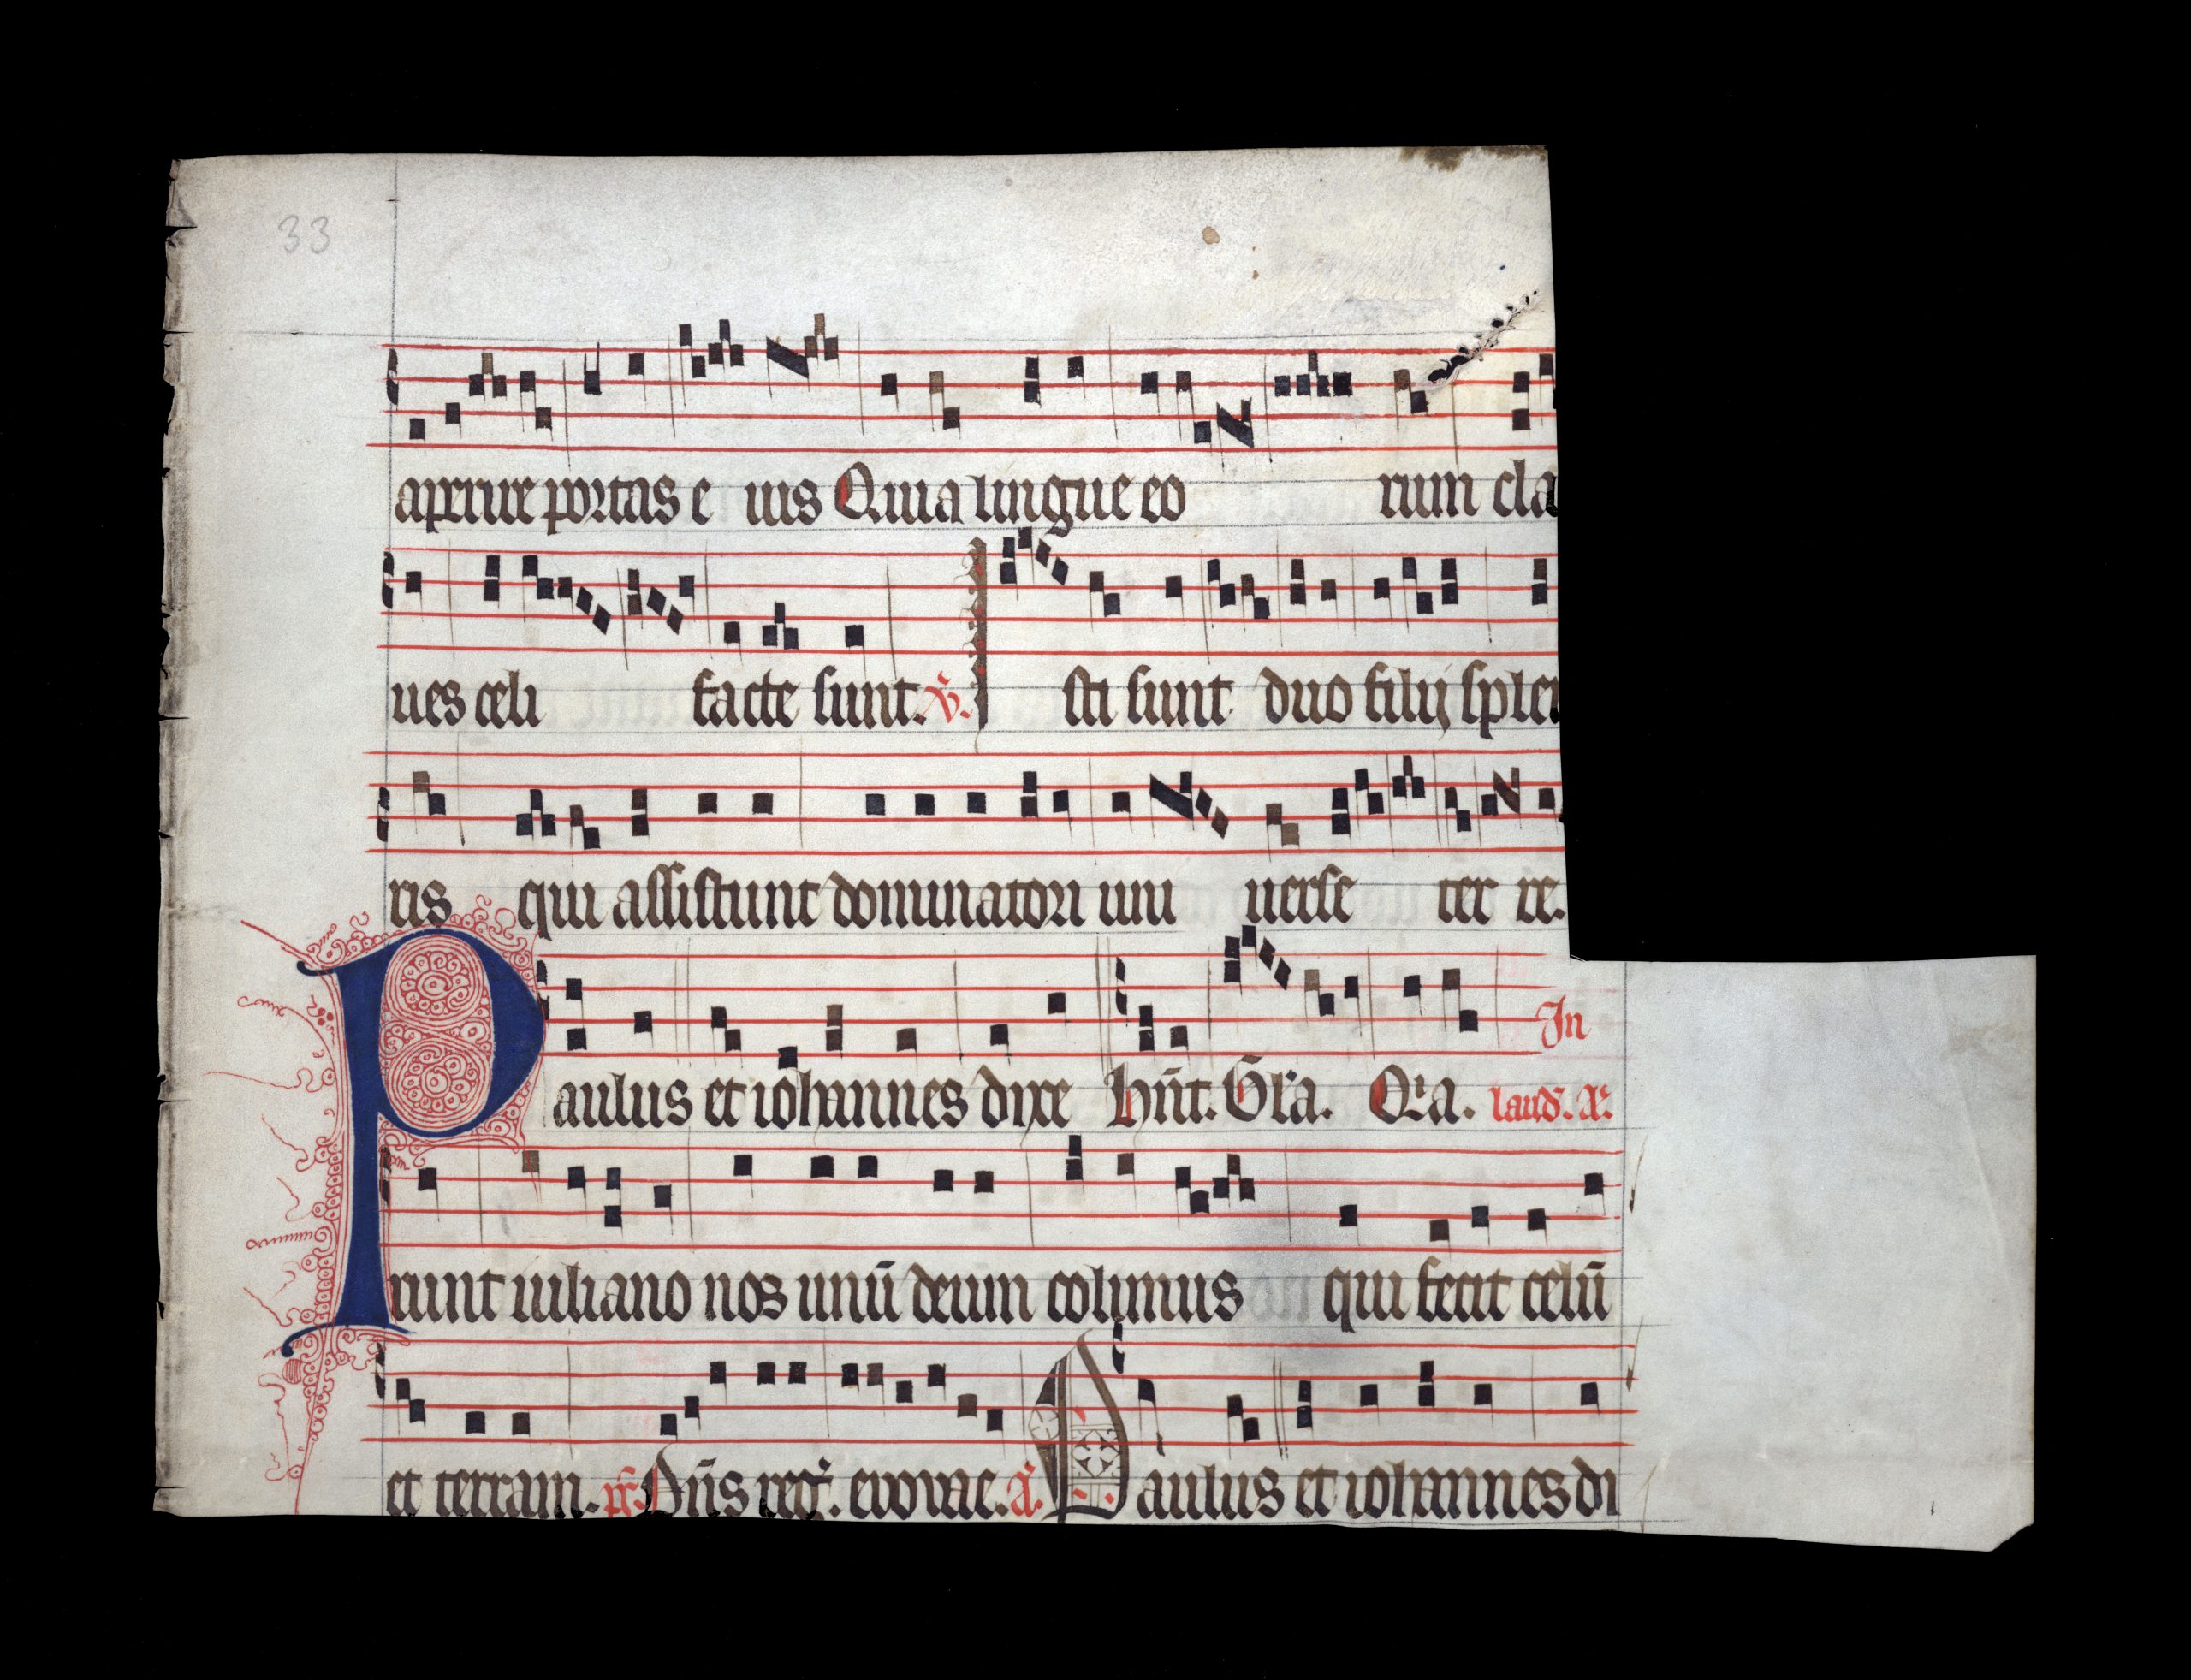 33
aperire portas e ius Quia lingue eo rum cla
ues celi facte sunt. ℣. Isti sunt duo filij splen
ris qui assistunt dominatori uni uerse ter re.
Paulus et iohannes dixe Hn̄t. Gła. Qa. In laud. a.
runt iuliano nos unū deum colimus qui fecit celū
et terram. ps. Dn̄s reg. euouae. a. Paulus et iohannes di